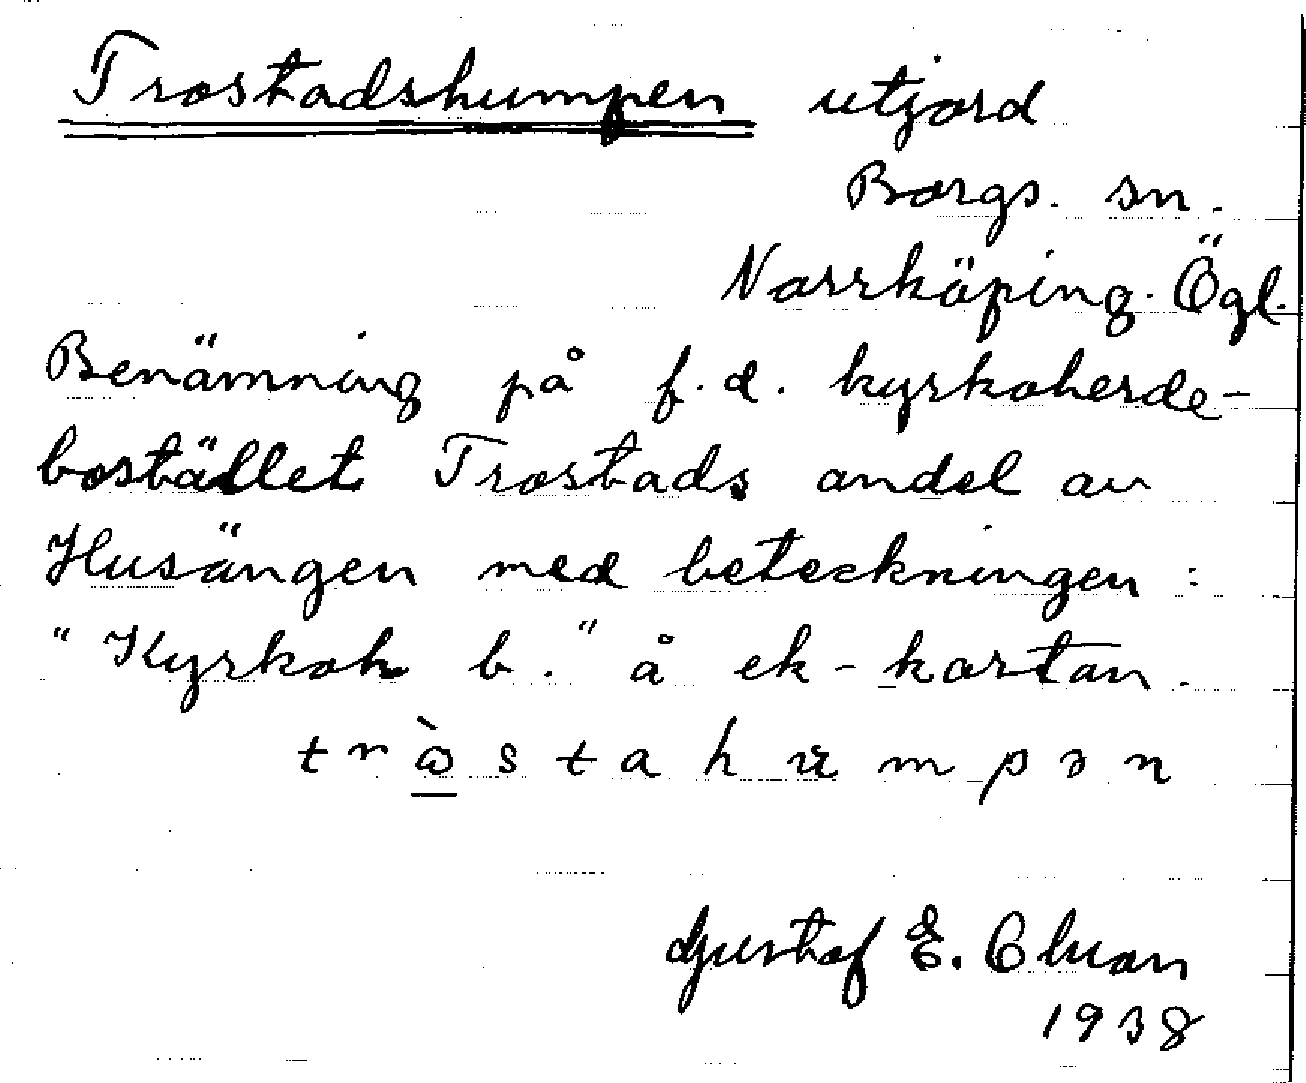 Trostadshumpen utjord
Borgs. sn.
Norrköping. Ögl.
Benämning på f.d. kyrkoherde-
bostället Trostads andel av
Husängen med beteckningen:
"Kyrkoh b." å ek-kartan.
Gustaf E.
1938